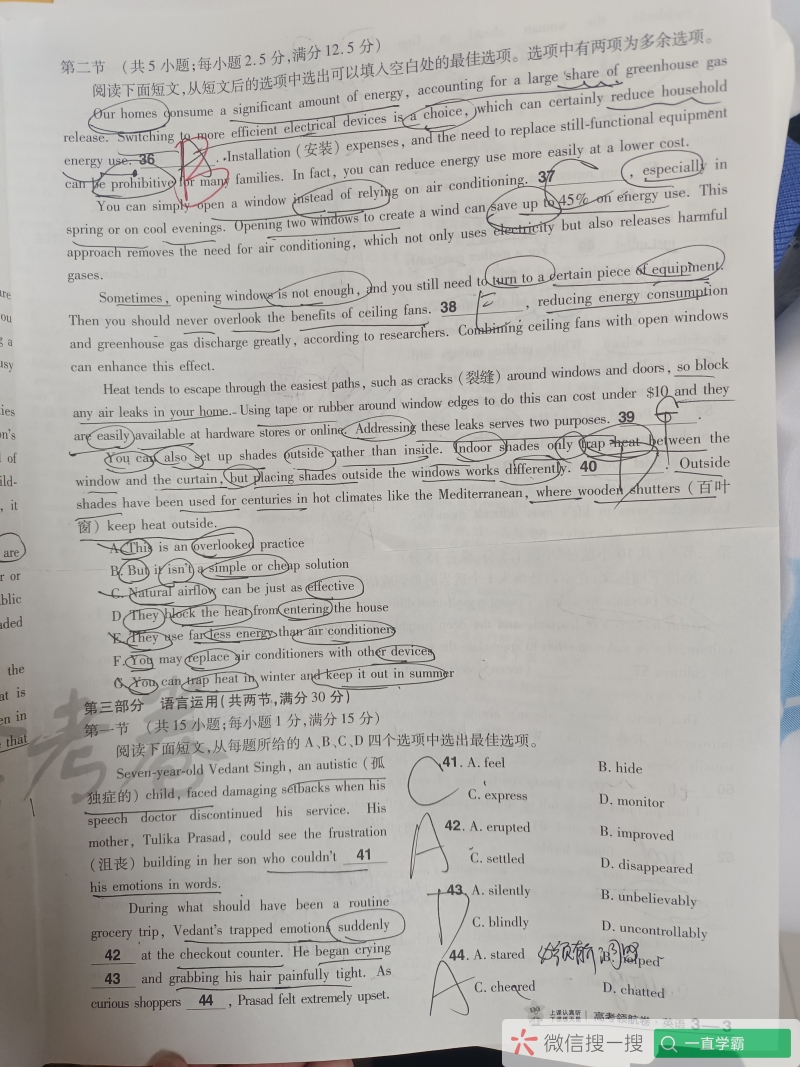 第二节 (共5小题;每小题2.5分,满分12.5分)
阅读下面短文,从短文后的选项中选出可以填入空白处的最佳选项。选项中有两项为多余选项。
Our homes consume a significant amount of energy, accounting for a large share of greenhouse gas
release. Switching to more efficient electrical devices is a choice, which can certainly reduce household
energy use. 36 B . Installation (安装) expenses, and the need to replace still-functional equipment
can be prohibitive for many families. In fact, you can reduce energy use more easily at a lower cost.
You can simply open a window instead of relying on air conditioning. 37 , especially in
spring or on cool evenings. Opening two windows to create a wind can save up to 45% on energy use. This
approach removes the need for air conditioning, which not only uses electricity but also releases harmful
gases.
Sometimes, opening windows is not enough, and you still need to turn to a certain piece of equipment.
Then you should never overlook the benefits of ceiling fans. 38 E , reducing energy consumption
and greenhouse gas discharge greatly, according to researchers. Combining ceiling fans with open windows
can enhance this effect.
Heat tends to escape through the easiest paths, such as cracks (裂缝) around windows and doors, so block
any air leaks in your home. Using tape or rubber around window edges to do this can cost under $10 and they
are easily available at hardware stores or online. Addressing these leaks serves two purposes. 39 .
You can also set up shades outside rather than inside. Indoor shades only trap heat between the
window and the curtain, but placing shades outside the windows works differently. 40 D . Outside
shades have been used for centuries in hot climates like the Mediterranean, where wooden shutters (百叶
窗) keep heat outside.
A. This is an overlooked practice
B. But it isn't a simple or cheap solution
C. Natural airflow can be just as effective
D. They block the heat from entering the house
E. They use far less energy than air conditioners
F. You may replace air conditioners with other devices
G. You can trap heat in winter and keep it out in summer
第三部分 语言运用(共两节,满分30分)
第一节 (共15小题;每小题1分,满分15分)
阅读下面短文,从每题所给的A、B、C、D四个选项中选出最佳选项。
Seven-year-old Vedant Singh, an autistic (孤
独症的) child, faced damaging setbacks when his
speech doctor discontinued his service. His
mother, Tulika Prasad, could see the frustration
(沮丧) building in her son who couldn't 41
his emotions in words.
During what should have been a routine
grocery trip, Vedant's trapped emotions suddenly
42 at the checkout counter. He began crying
43 and grabbing his hair painfully tight. As
curious shoppers 44 , Prasad felt extremely upset.
C 41. A. feel B. hide
C. express D. monitor
A 42. A. erupted B. improved
C. settled D. disappeared
D 43. A. silently B. unbelievably
C. blindly D. uncontrollably
A 44. A. stared B. helped
C. cheered D. chatted
高考领航卷·英语 3—3
微信搜一搜
一直学霸
are
or or
ublic
the
at is
en in
that